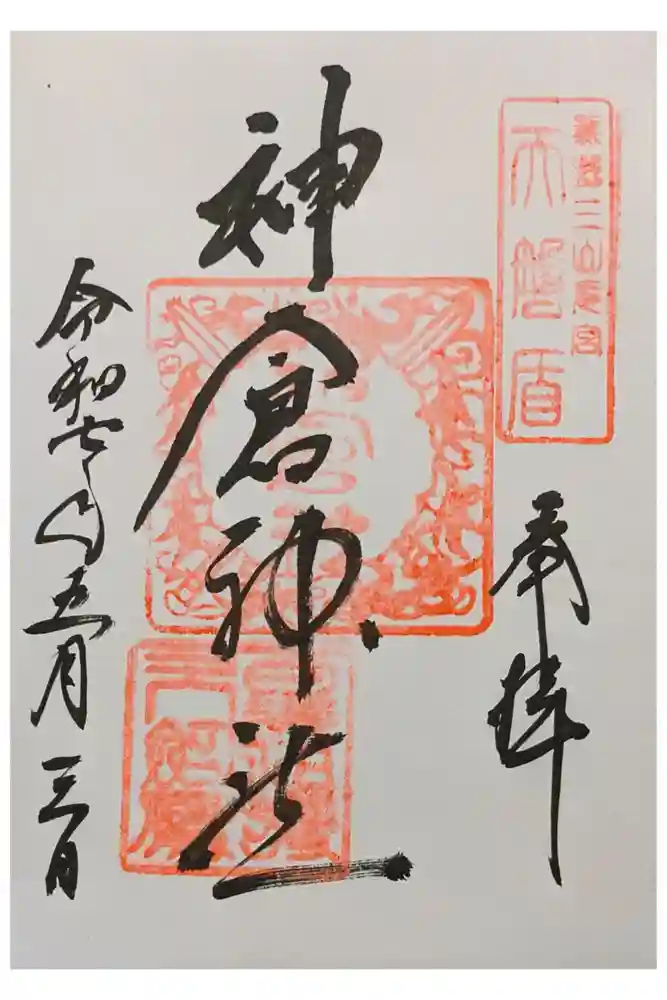 熊野三山元宮
天磐盾
奉拝
神倉神社
令和七年五月三日